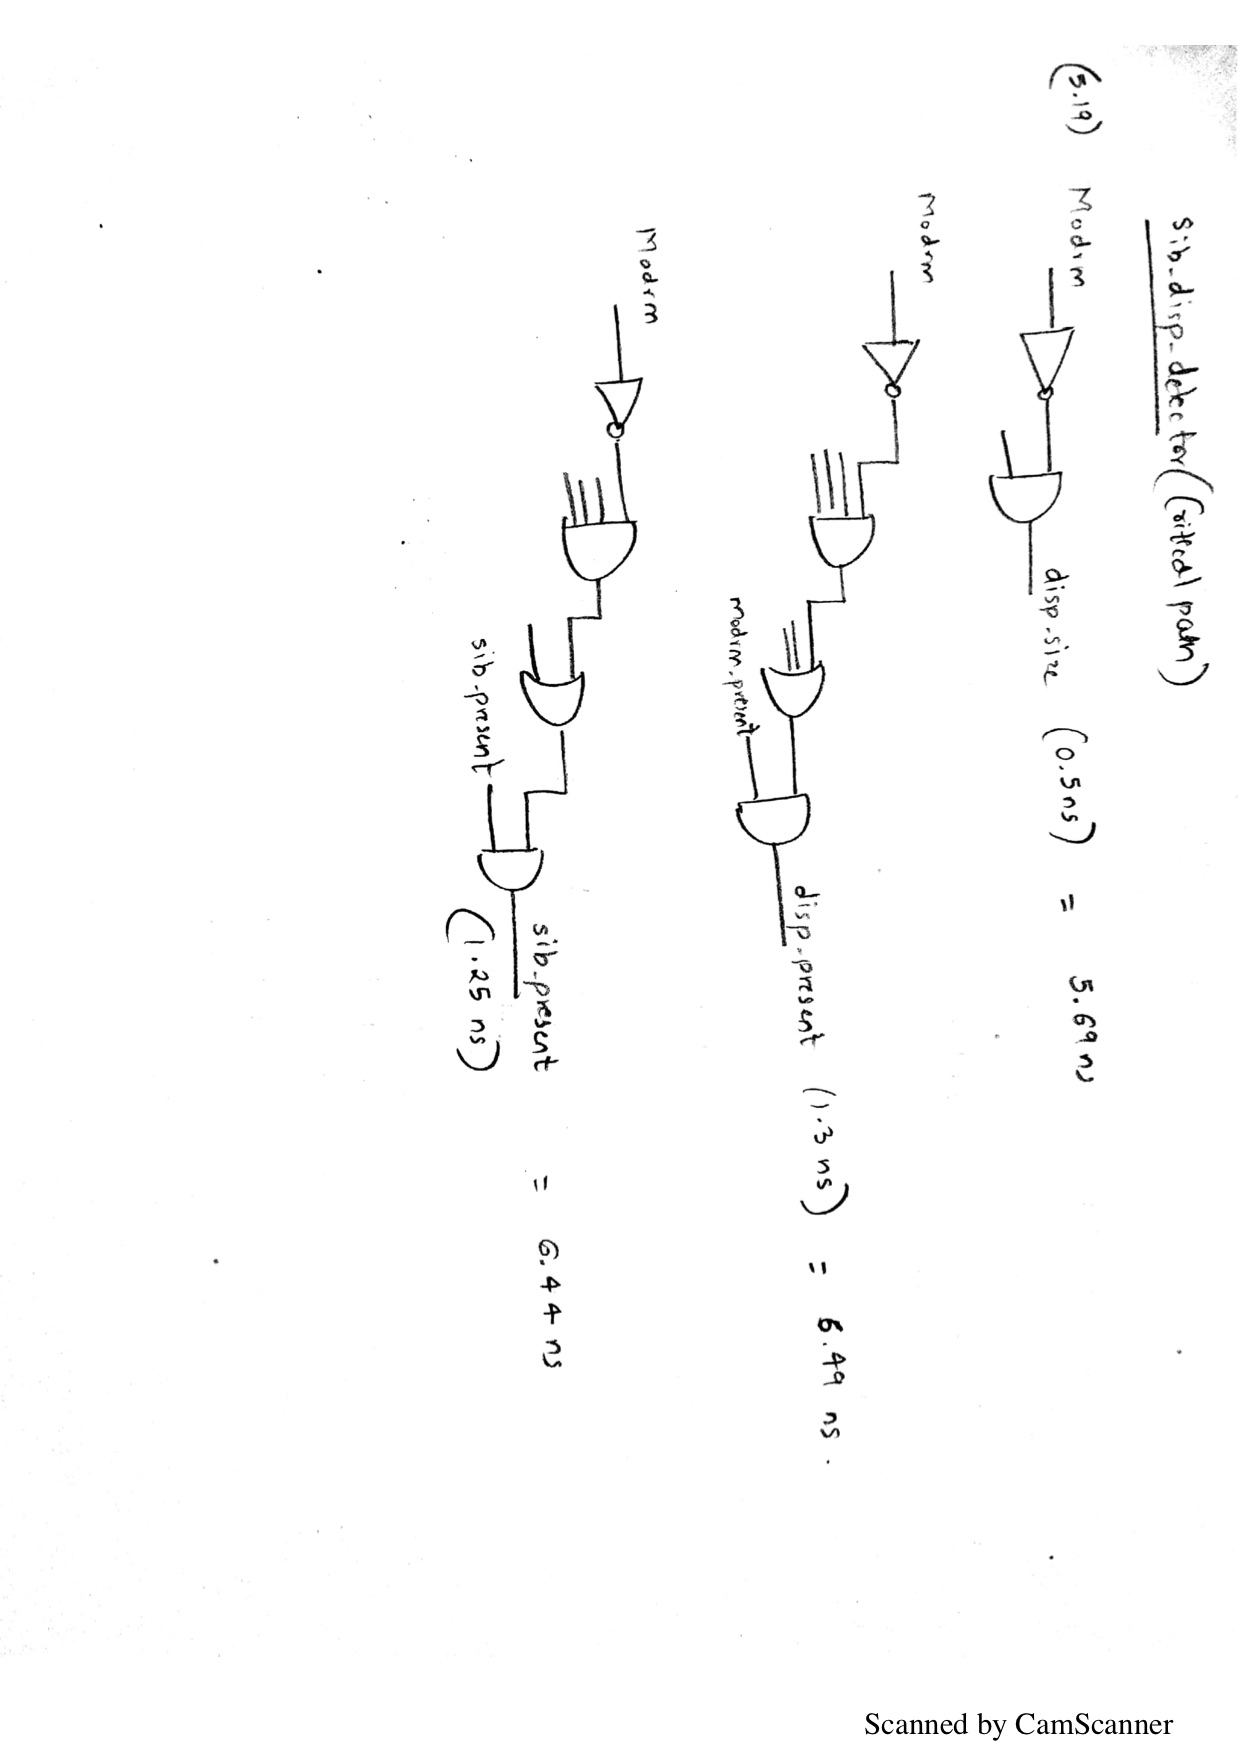 Sib-disp-detector (Critical path)
(5.19) Modrm disp-size (0.5ns) = 5.69 ns
Modrm
modrm-present
disp-present (1.3 ns) = 6.49 ns.
Modrm
sib-present
sib-present = 6.44 ns
(1.25 ns)
Scanned by CamScanner